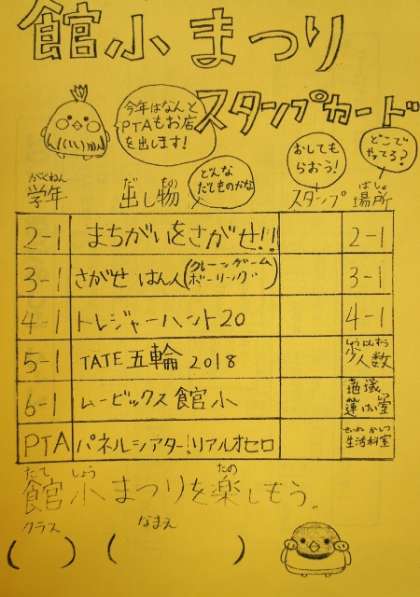 館小まつり
スタンプカード
今年はなんと
PTAもお店
を出します!
どんな
だしものかな
おしても
らおう!
どこで
やってる?
がくねん
学年
だ もの
出し物
スタンプ
ばしょ
場所
2-1 まちがいをさがせ!! 2-1
3-1 さがせ はん人(クレーンゲーム ボーリング) 3-1
4-1 トレジャーハント20 4-1
5-1 TATE五輪 2018 しょうにんずう 少人数
6-1 ムービックス館小 地域
PTA パネルシアター!リアルオセロ せいかつかしつ 生活科室
たて しょう たの
館小まつりを楽しもう。
クラス なまえ
( ) ( )